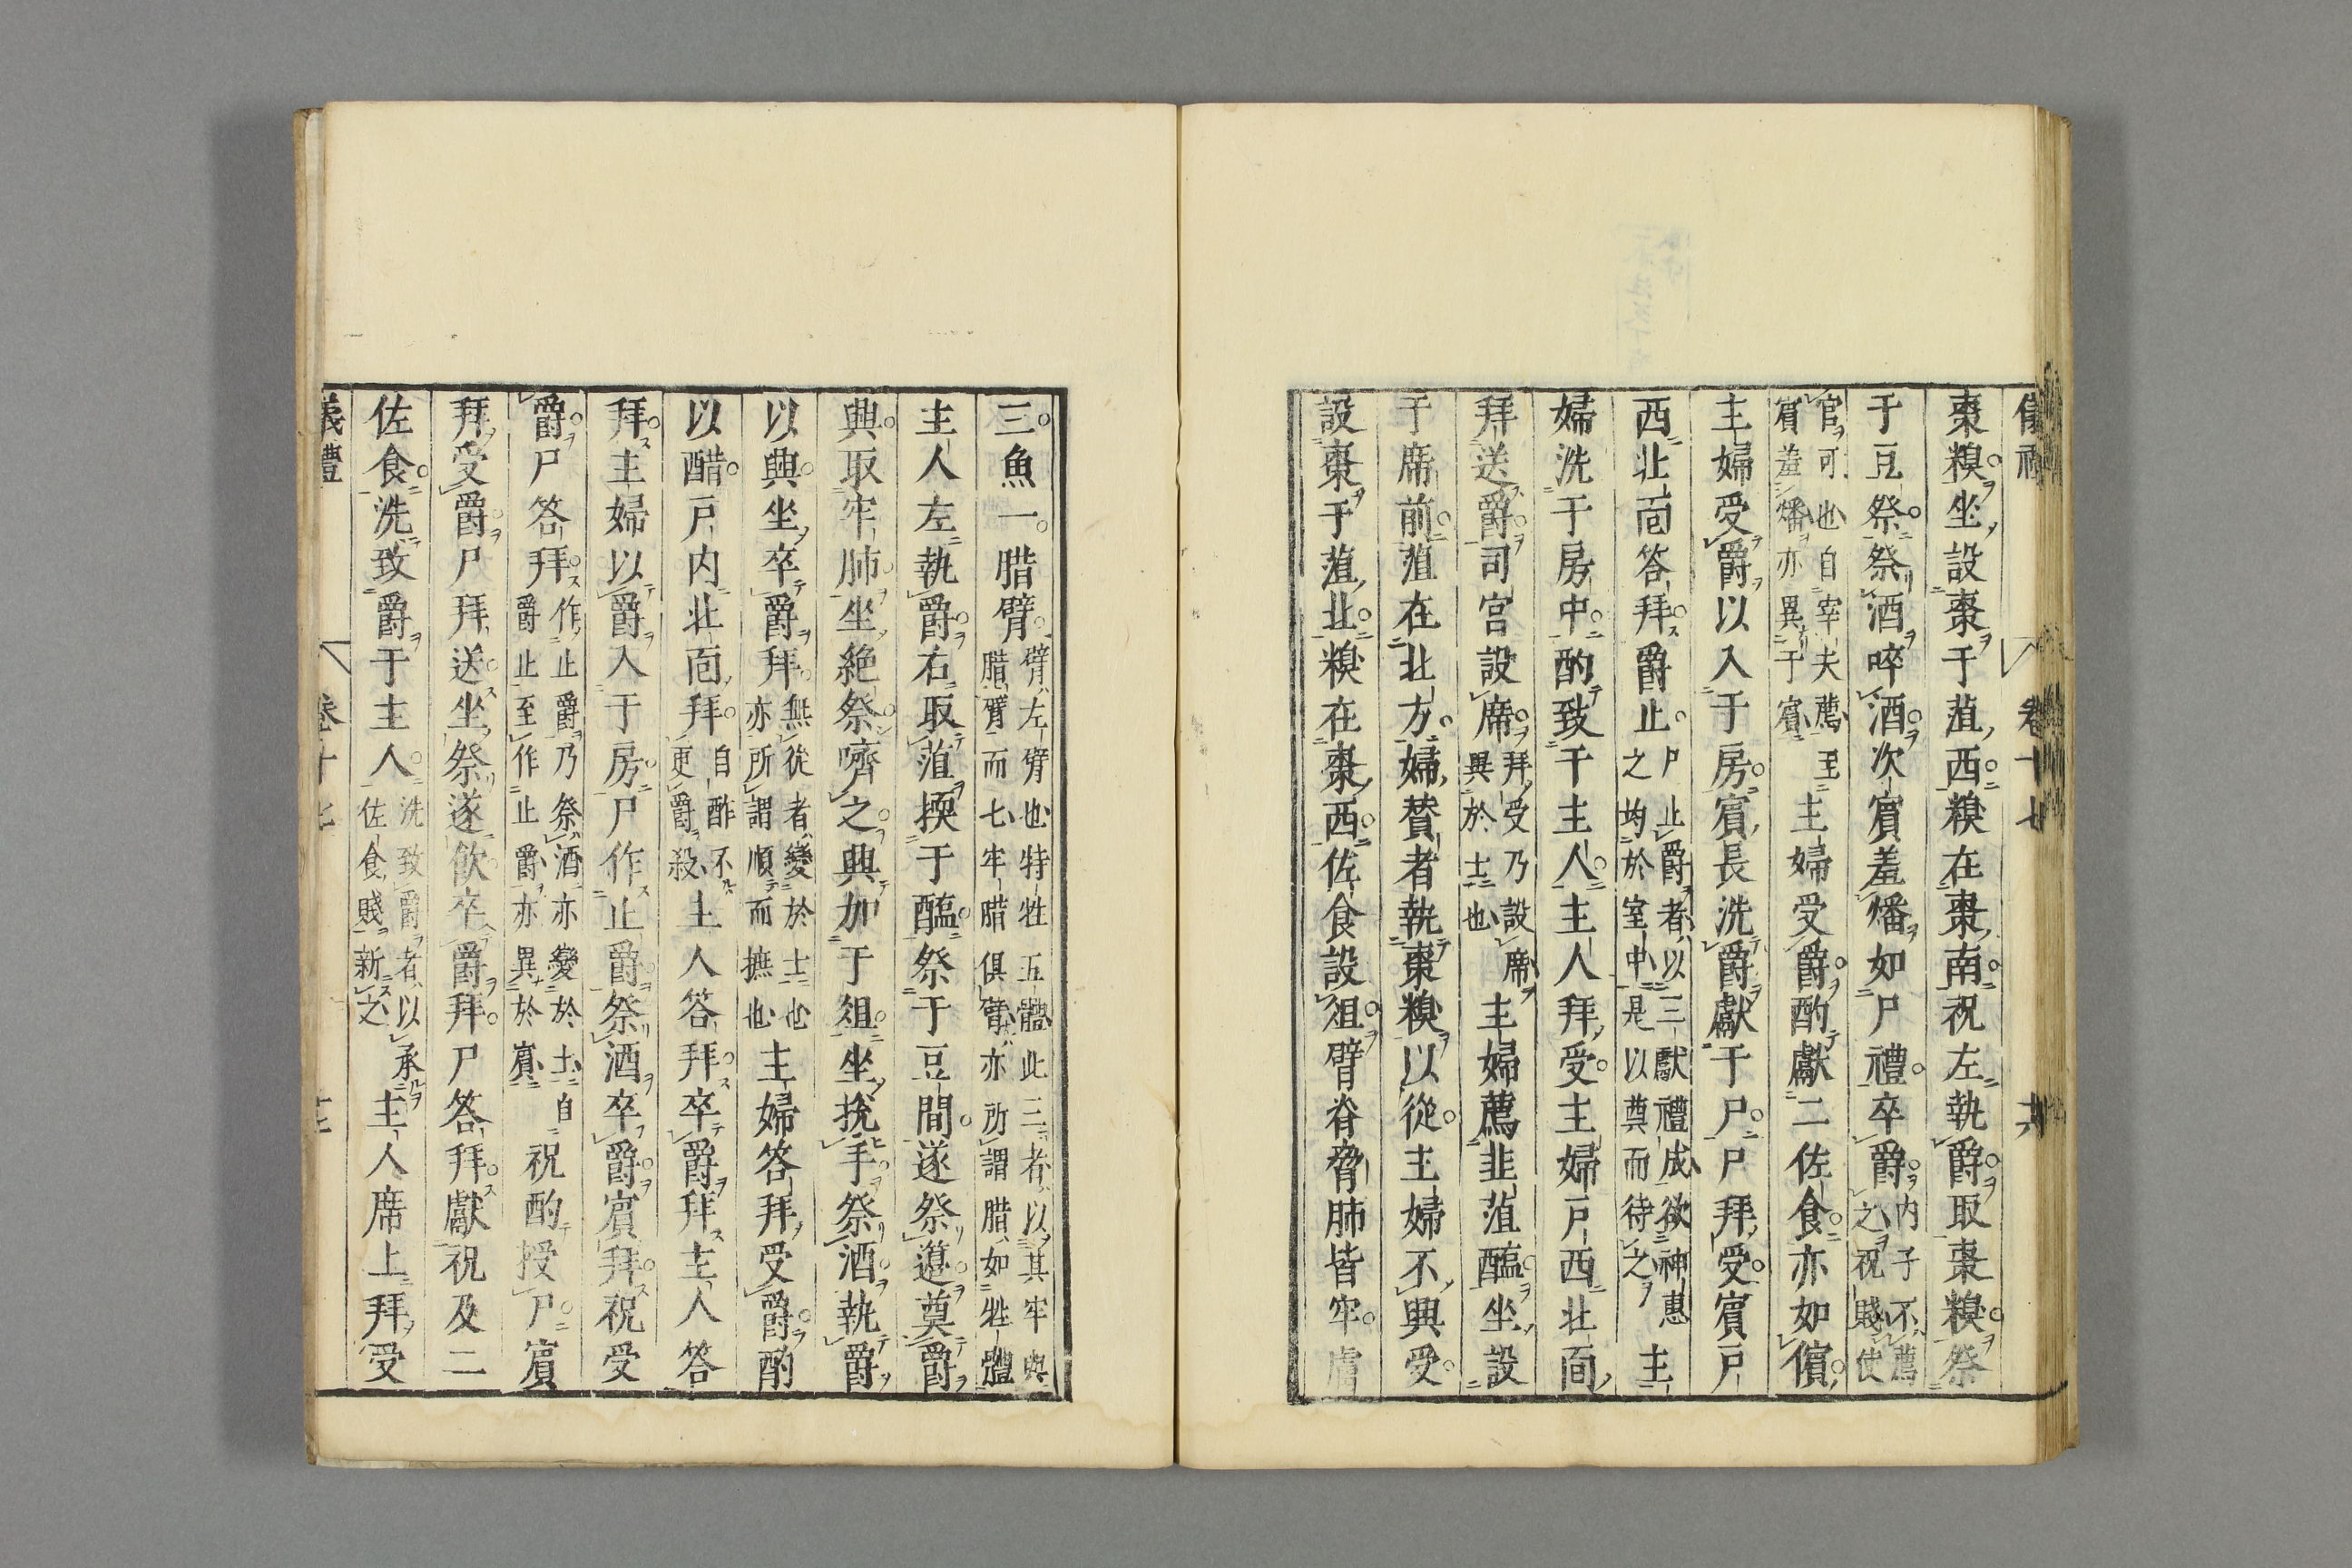 儀禮 卷十七
棗糗坐設棗于菹西糗在棗南祝左執爵取棗糗祭
于豆祭祭酒啐酒次賓羞燔如尸禮卒爵内子不薦之祝賤使
官可也自宰夫薦至賓羞燔亦異于賓主婦受爵酌獻二佐食亦如儐
主婦受爵以入于房賓長洗爵獻于尸尸拜受賓戸
西北面答拜爵止尸止爵者以三獻禮成欲神惠之均於室中是以奠而待之主
婦洗于房中酌致于主人主人拜受主婦戸西北面
拜送爵司宮設席拜受乃設席異於士也主婦薦韭菹醢坐設
于席前菹在北方婦贊者執棗糗以從主婦不興受
設棗于菹北糗在棗西佐食設俎臂脊脅肺皆牢膚
三魚一腊臂臂左臂也特牲五體此三者以其牢與腊臂而七牢腊俱臂亦所謂腊如牲體
主人左執爵右取菹擩于醢祭于豆間遂祭籩奠爵
興取牢肺坐絶祭嚌之興加于俎坐挩手祭酒執爵
以興坐卒爵拜無從者變於士也亦所謂順而摭也主婦答拜受爵酌
以醋戸内北面拜自酢不更爵殺主人答拜卒爵拜主人答
拜主婦以爵入于房尸作止爵祭酒卒爵賓拜祝受
爵尸答拜作止爵乃祭酒亦變於士自爵止至作止爵亦異於賓祝酌授尸賓
拜受爵尸拜送坐祭遂飲卒爵拜尸答拜獻祝及二
佐食洗致爵于主人洗致爵者以承佐食賤新之主人席上拜受
儀禮 卷十七